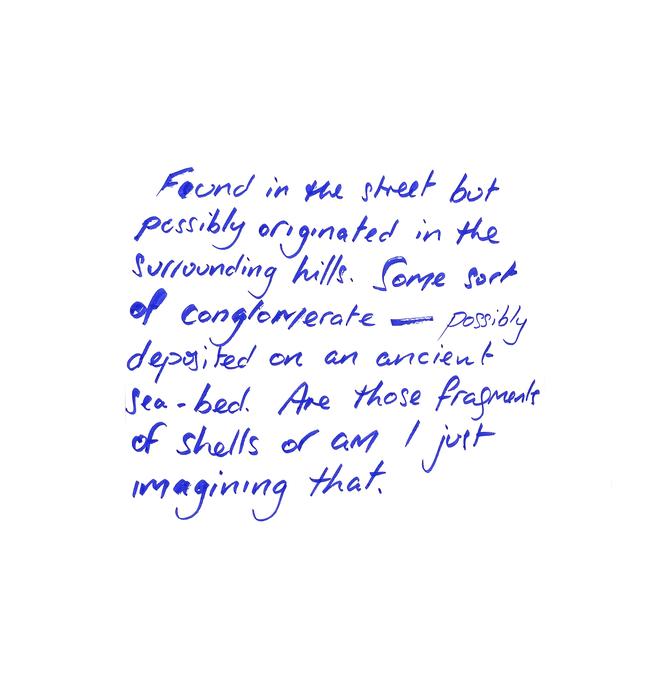 Found in the street but
possibly originated in the
surrounding hills. Some sort
of conglomerate — possibly
deposited on an ancient
sea-bed. Are those fragments
of shells or am I just
imagining that.